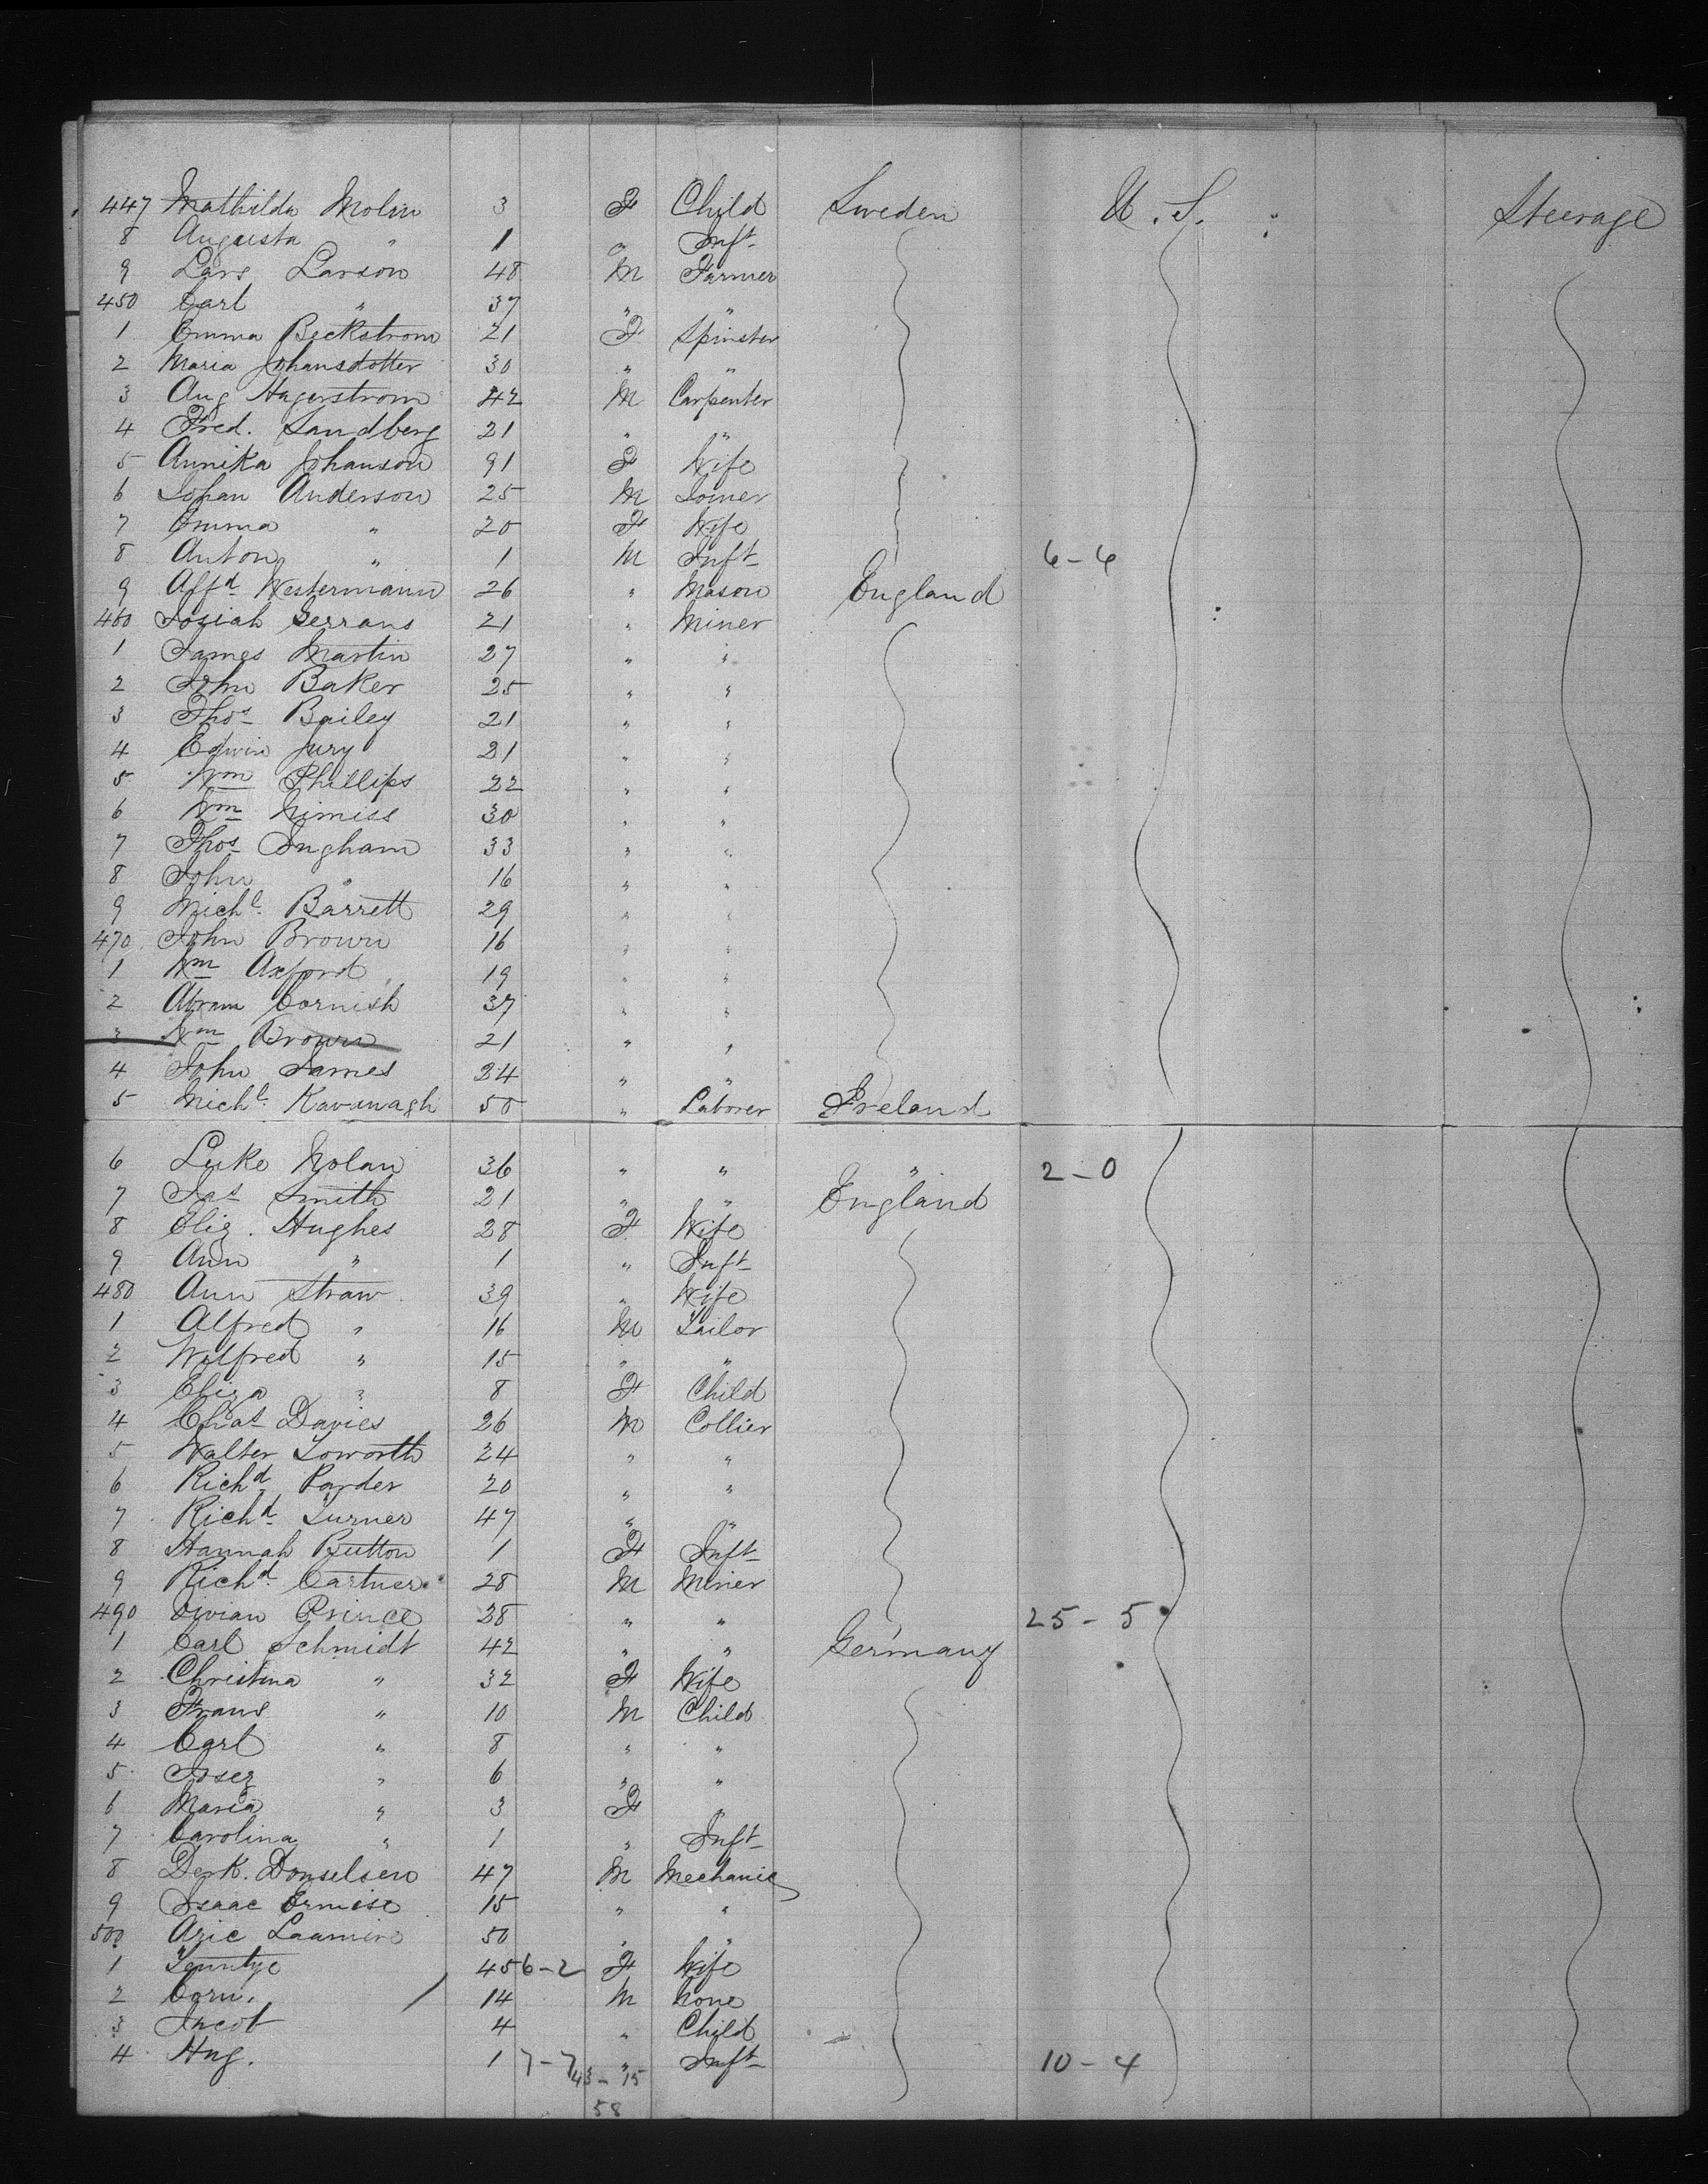 447 Mathilda Molin 3 F Child Sweden U.S. Steerage
8 Augusta " 1 " Inft
9 Lars Larson 48 M Farmer
450 Carl " 37 " "
1 Emma Beckstrom 21 F Spinster
2 Maria Johansdotter 30 " "
3 Aug Hagerstrom 42 M Carpenter
4 Fred. Sandberg 21 " "
5 Annika Johanson 91 F Wife
6 Johan Anderson 25 M Joiner
7 Emma " 20 F Wife
8 Anton " 1 M Inft 6-6
9 Alfd Westermann 26 " Mason England
460 Josiah Serrans 21 " Miner
1 James Martin 27 " "
2 John Baker 25 " "
3 Thos Bailey 21 " "
4 Edwin Jury 21 " "
5 Wm Phillips 22 " "
6 Wm Nimiss 30 " "
7 Thos Ingham 33 " "
8 John " 16 " "
9 Michl. Barrett 29 " "
470 John Brown 16 " "
1 Wm Axford 19 " "
2 Abram Cornish 37 " "
3 Wm Brown 21 " "
4 John James 24 " "
5 Michl. Kavanagh 50 " Laborer Ireland
6 Luke Nolan 36 " " " 2-0
7 Jas Smith 21 " " England
8 Eliz. Hughes 28 F Wife
9 Ann " 1 " Inft
480 Ann Straw 39 " Wife
1 Alfred " 16 M Tailor
2 Wilfred " 15 " "
3 Eliza " 8 F Child
4 Chas Davies 26 M Collier
5 Walter Toworth 24 " "
6 Richd Parder 20 " "
7 Richd Turner 47 " "
8 Hannah Button 1 F Inft
9 Richd Cartner 28 M Miner
490 Vivian Prince 28 " " 25-5
1 Carl Schmidt 42 " " Germany
2 Christina " 32 F Wife
3 Frans " 10 M Child
4 Carl " 8 " "
5 Josez " 6 " "
6 Maria " 3 F "
7 Carolina " 1 " Inft
8 Derk. Donselsen 47 M Mechanic
9 Isaac 15 " "
500 Arie 50 " "
1 45 6-2 F Wife
2 Corn. 14 M None
3 Jacob 4 " Child
4 Hug. 1 7-7 " Inft 10-4
43-15
58